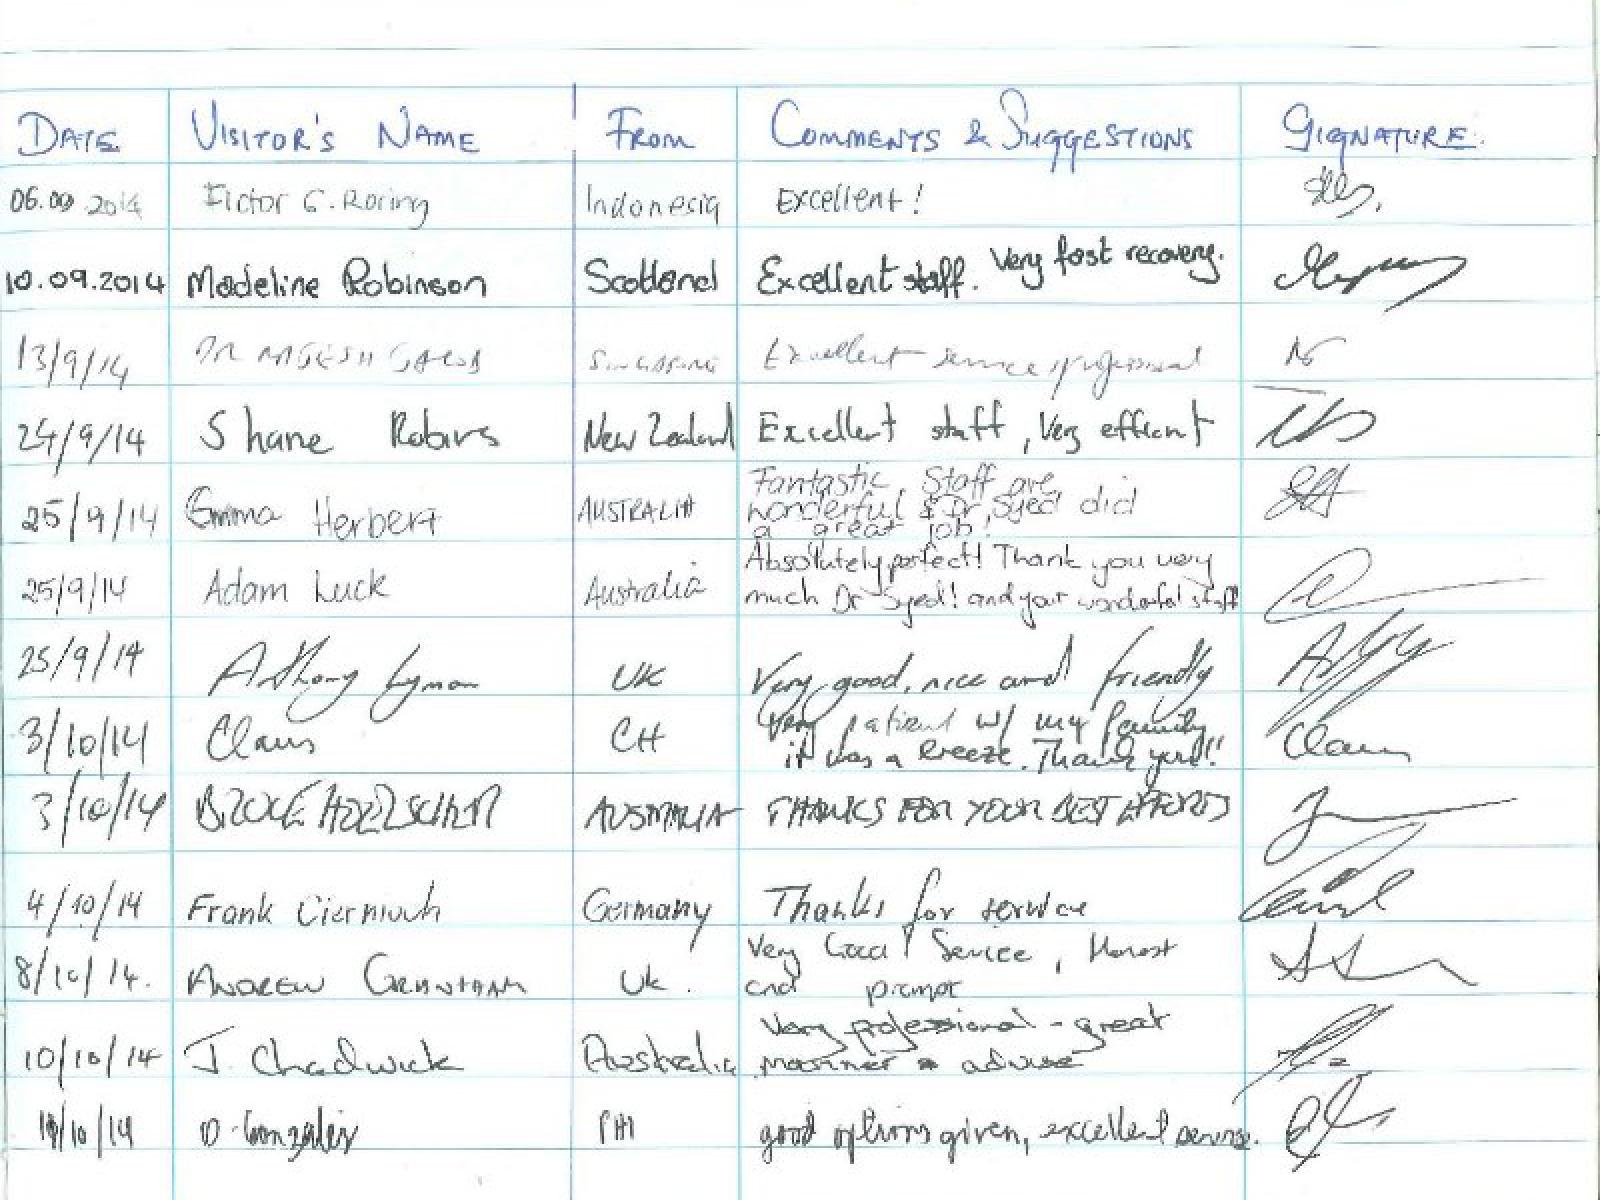 DATE VISITOR'S NAME FROM COMMENTS & SUGGESTIONS SIGNATURE.
06.09.2014 Fictor G. Roring Indonesia Excellent!
10.09.2014 Madeline Robinson Scotland Excellent staff. Very fast recovery.
13/9/14 DR Singapore Excellent service professional
24/9/14 Shane New Zealand Excellent staff, Very efficient
25/9/14 Emma Herbert AUSTRALIA Fantastic. Staff are
wonderful & Dr Syed did
a great job!
25/9/14 Adam Luck Australia Absolutely perfect! Thank you very
much Dr Syed! and your wonderful staff
25/9/14 Anthony Lyman UK Very good, nice and friendly
3/10/14 Claus CH Very patient w/ my family
it was a breeze. Thank you!!
3/10/14 AUSTRALIA THANKS FOR YOUR BEST EFFORTS
4/10/14 Frank Germany Thanks for service
8/10/14. ANDREW GRANTHAM UK. Very Good Service, Honest
and prompt
10/10/14 J. Chadwick Australia Very professional - great
manner & advise
/10/14 D. Gonzales PHI good options given, excellent service.